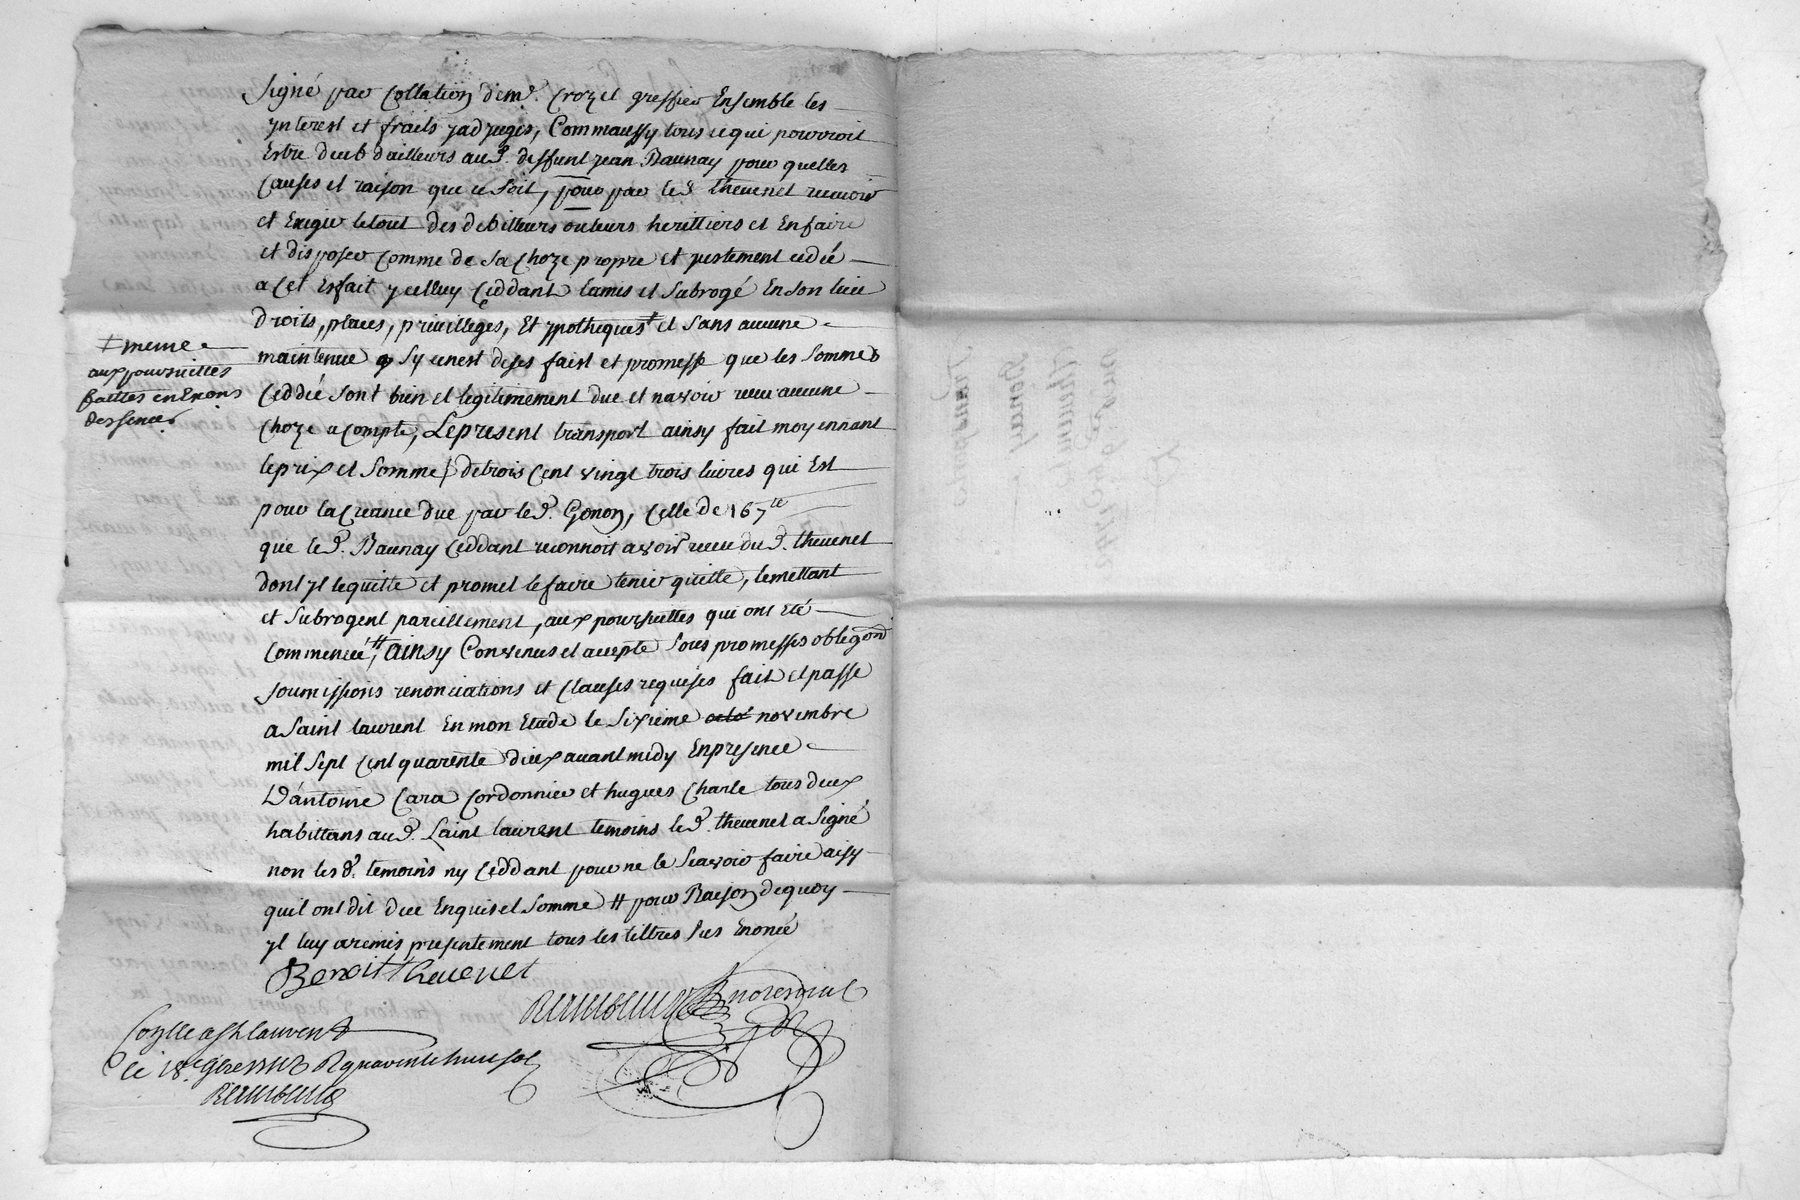 signé par Collation de mr. Crozet greffier Ensemble les
ynterest et fraits y adjuges, Comm aussy tous ce qui pourroit
Estre deub d'ailleurs au d. deffunt jean Baunay pour quelles
Causes et raison que ce soit, pour par le d. thevenet recevoir
et Exigir le tout des debitteurs ou leurs herittiers et En faire
et disposer Comme de sa Choze propre et justement ceddé
a Cet Esfait ycelluy Ceddant l'a mis et subrogé En son lieu
droits, places, privilleges, Et ypotheques ‡ et sans aucune
maintenue sy ce n'est de ses fait et promesse que les sommes
Ceddé sont bien et legitimement due et n'avoir receu aucune
Choze a compte, Le present transport ainsy fait moyennant
le prix et somme de trois Cent vingt trois livres qui Est
pour la Creance due par le d. Gonon, Celle de 167 lt
que le d. Baunay Ceddant reconnoit avoir receu du d. thevenet
dont yl le quitte et promet le faire tenir quitte, le mettant
et subrogent pareillement, aux poursuittes qui ont Eté
Commencé, # ainsy Convenus et accepté sous promesses obligaon
soumissions renonciations et Clauses requises fait et passé
a Saint laurent En mon Etude le sixieme novembre
mil sept Cent quarente deux avant midy En presence
D'antoine Cara Cordonnier et hugues Charle tous deux
habittans au d. Saint laurent temoins le d. thevenet a signé
non les d. temoins ny Ceddant pour ne le scavoir faire aisy
qu'il ont dit due Enquis et sommé # pour Raison de quoy
yl luy a remis presentement tous les tiltres sus Enoncé
‡ meme
aux poursuittes
faittes en Exons
dessence
Benoit thevenet
Colle a St laurent
le 18e 9bre 1742